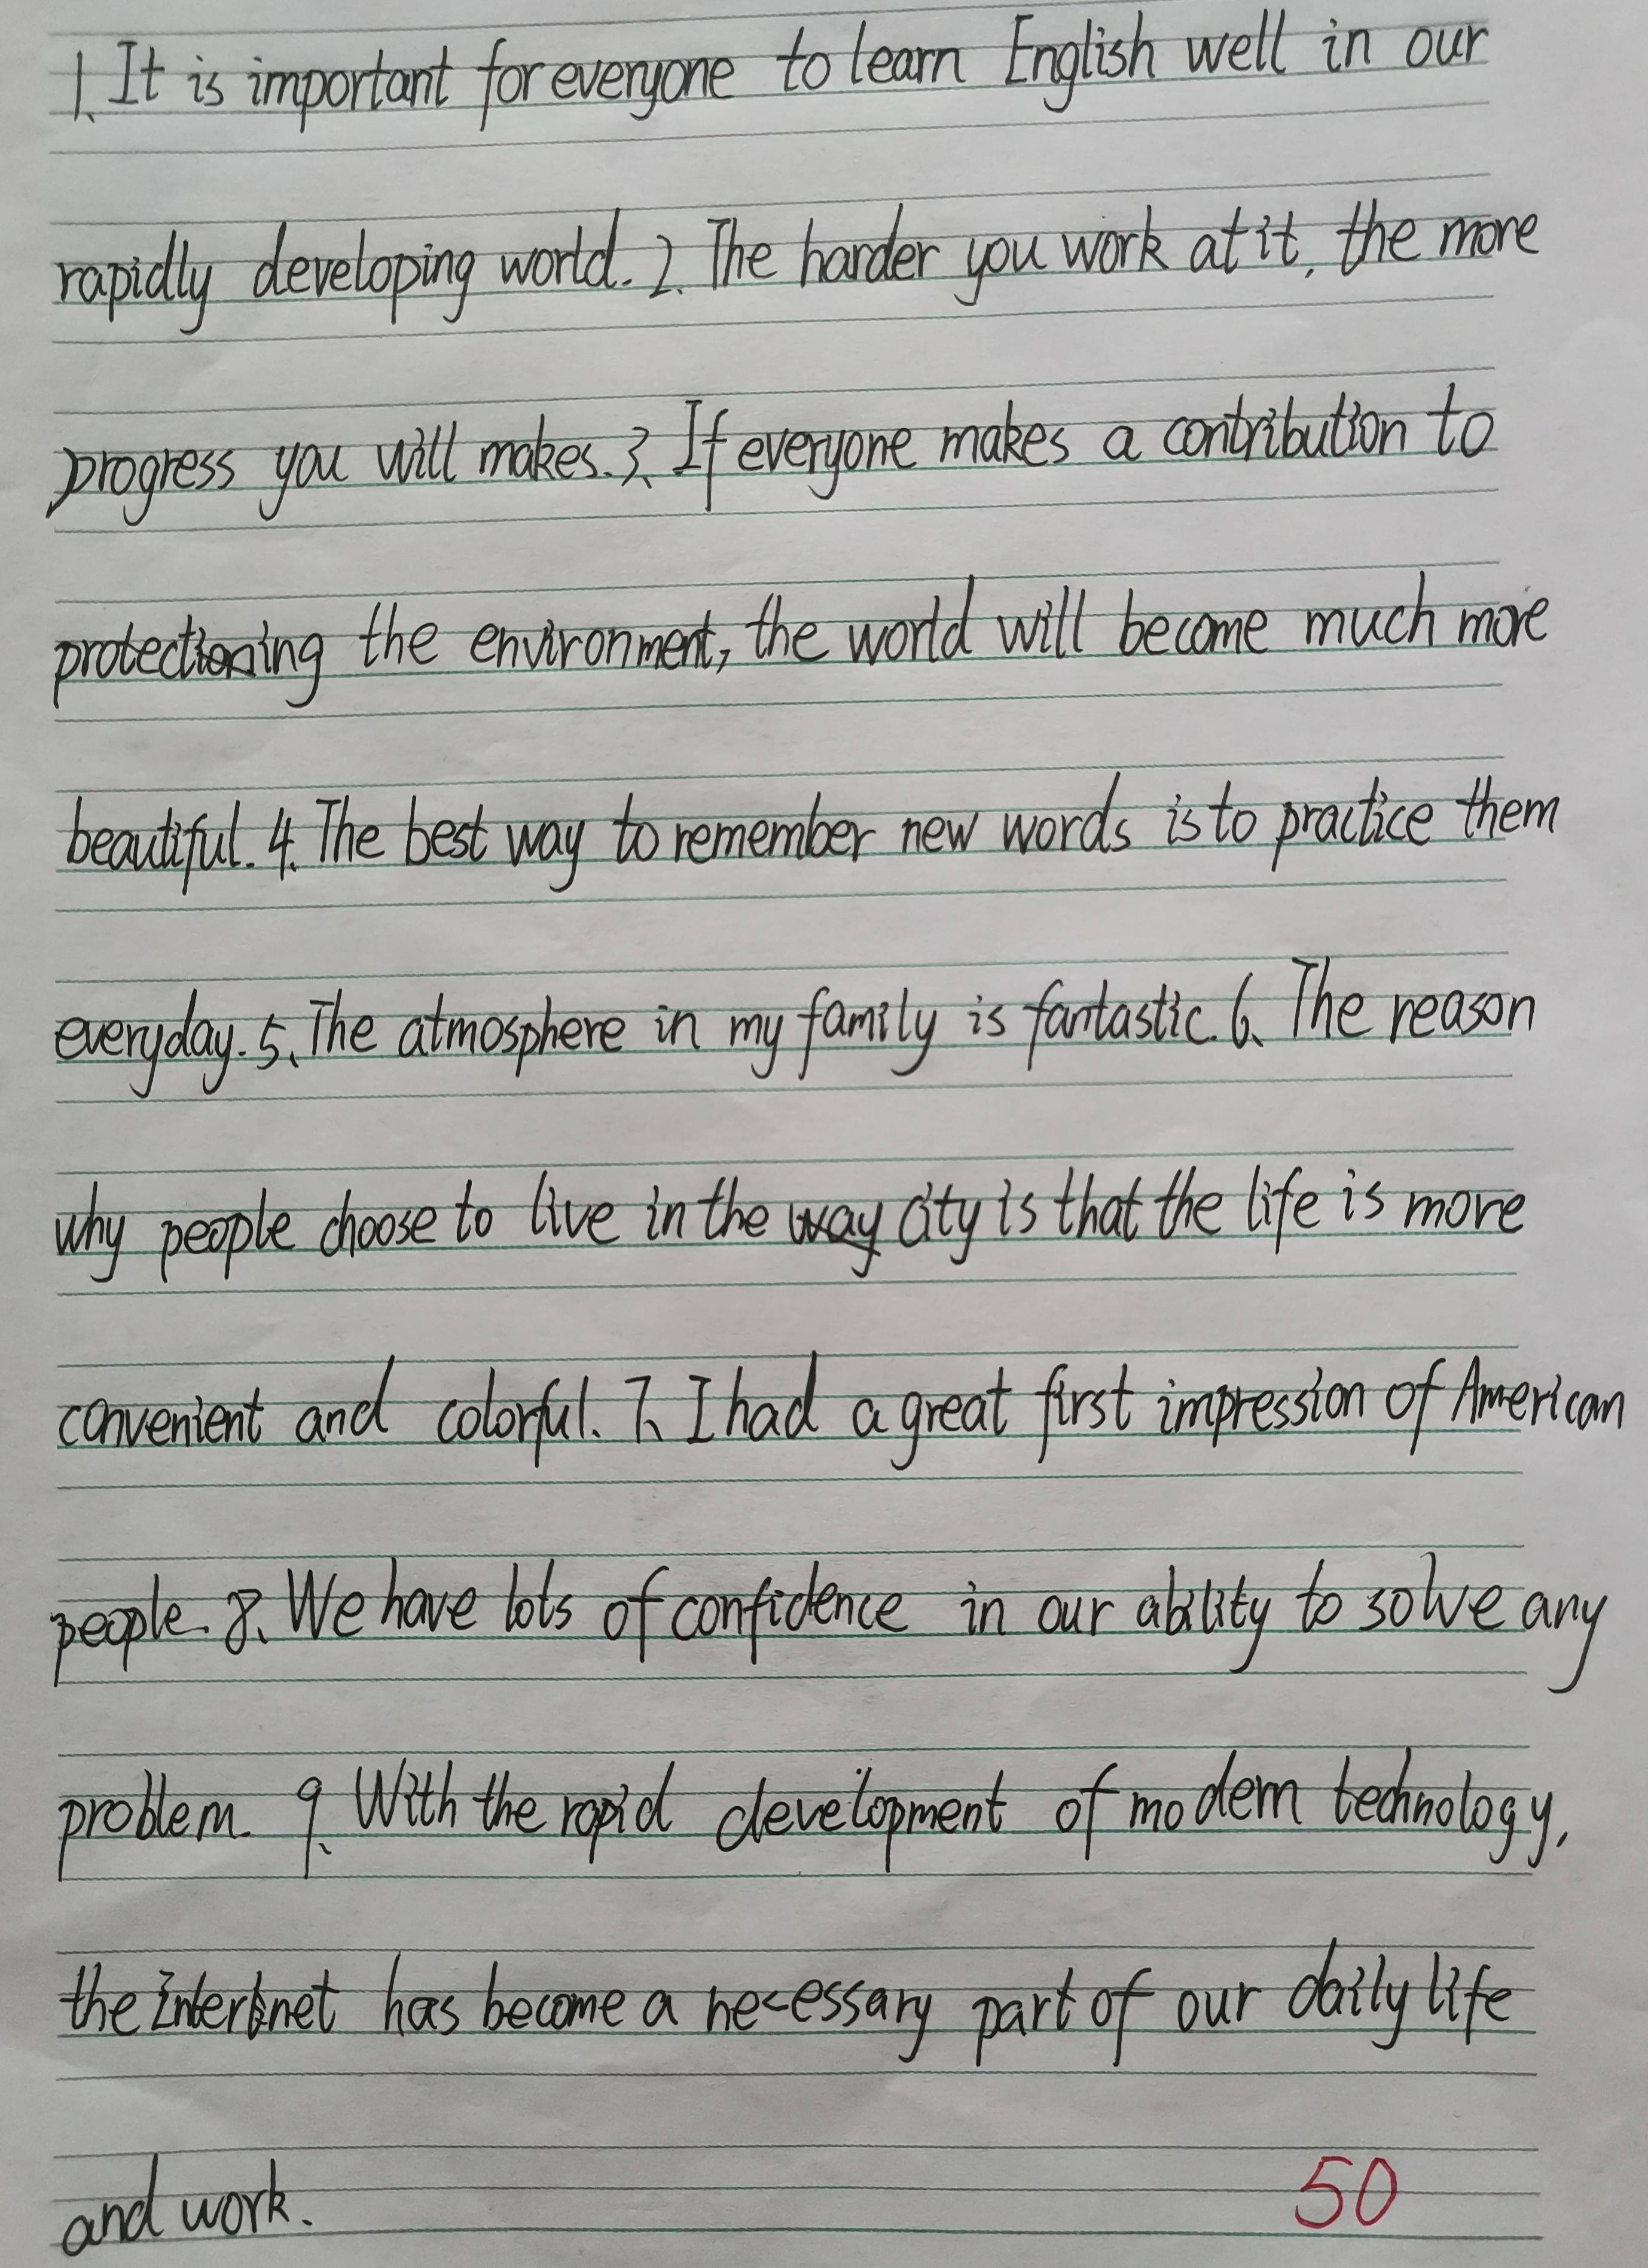 1. It is important for everyone to learn English well in our
rapidly developing world. 2. The harder you work at it, the more
progress you will makes. 3. If everyone makes a contribution to
protectioning the environment, the world will become much more
beautiful. 4. The best way to remember new words is to practice them
everyday. 5. The atmosphere in my family is fantastic. 6. The reason
why people choose to live in the way city is that the life is more
convenient and colorful. 7. I had a great first impression of American
people. 8. We have lots of confidence in our ability to solve any
problem. 9. With the rapid development of modern technology,
the Internet has become a necessary part of our daily life
and work.
50